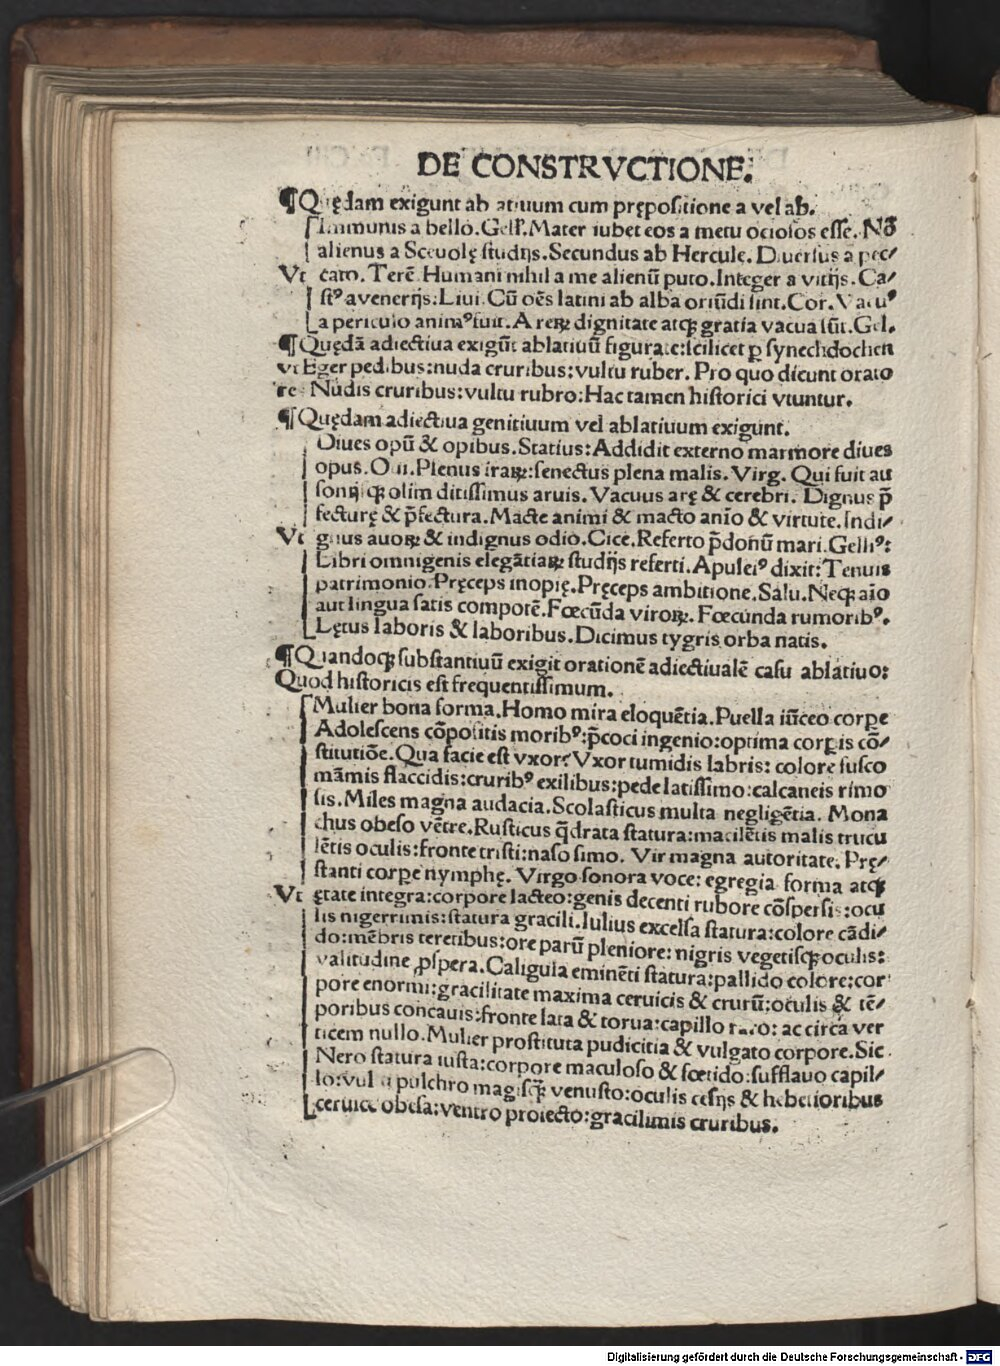 DE CONSTRVCTIONE.
¶Quędam exigunt ab atiuum cum prępositione a vel ab.
Immunis a bello. Gell'. Mater iubet eos a metu ociosos esse. Nō
alienus a Sceuolę studijs. Secundus ab Hercule. Diuersus a pec/
Vt cato. Terē. Humani nihil a me alienū puto. Integer a vitijs. Ca/
stꝰ a venerijs: Liui. Cū oēs latini ab alba oriūdi sint. Cor. Vacuꝰ
a periculo animꝰ fuit. A reꝝ dignitate atqꝫ gratia vacua sūt. Gel.
¶Quędā adiectiua exigūt ablatiuū figurate: scilicet ꝑ synechdochen
vt Eger pedibus: nuda cruribus: vultu ruber. Pro quo dicunt orato
re Nudis cruribus: vultu rubro: Hac tamen historici vtuntur.
¶Quędam adiectiua genitiuum vel ablatiuum exigunt.
Diues opū & opibus. Statius: Addidit externo marmore diues
opus. Oui. Plenus iraꝝ: senectus plena malis. Virg. Qui fuit au
sonijqꝫ olim ditissimus aruis. Vacuus arę & cerebri. Dignus p̄
fecturę & p̄fectura. Macte animi & macto anīo & virtute. Indi/
Vt gnus auoꝝ & indignus odio. Cice. Referto p̄donū mari. Gelliꝰ:
Libri omnigenis elegātiaꝝ studijs referti. Apuleiꝰ dixit: Tenuis
patrimonio. Pręceps inopię. Pręceps ambitione. Salu. Neqꝫ aīo
aut lingua satis compotē. Fœcūda viroꝝ. Fœcunda rumoribꝰ.
Lętus laboris & laboribus. Dicimus tygris orba natis.
¶Quandoqꝫ substantiuū exigit orationē adiectiualē casu ablatiuo:
Quod historicis est frequentissimum.
Mulier bona forma. Homo mira eloquētia. Puella iūceo corpe
Adolescens cōpositis moribꝰ: p̄coci ingenio: optima corpis cō/
stitutiōe. Qua facie est vxor? Vxor tumidis labris: colore fusco
māmis flaccidis: cruribꝰ exilibus: pede latissimo: calcaneis rimo
sis. Miles magna audacia. Scolasticus multa negligētia. Mona
chus obeso vētre. Rusticus q̄drata statura: macilētis malis trucu
lētis oculis: fronte tristi: naso simo. Vir magna autoritate. Prę/
stanti corpe nymphę. Virgo sonora voce: egregia forma atqꝫ
Vt ętate integra: corpore lacteo: genis decenti rubore cōspersis: ocu
lis nigerrimis: statura gracili. Iulius excelsa statura: colore cādi/
do: mēbris teretibus: ore parū pleniore: nigris vegetisqꝫ oculis:
valitudine ꝓspera. Caligula eminēti statura: pallido colore: cor
pore enormi: gracilitate maxima ceruicis & crurū: oculis & tē/
poribus concauis: fronte lata & torua: capillo raro: ac circa ver
ticem nullo. Mulier prostituta pudicitia & vulgato corpore. Sic
Nero statura iusta: corpore maculoso & fœtido: sufflauo capil/
lo: vultu pulchro magisqꝫ venusto: oculis cesijs & hebetioribus
ceruice obesa: ventro proiecto: gracilimis cruribus.
Digitalisierung gefördert durch die Deutsche Forschungsgemeinschaft - DFG